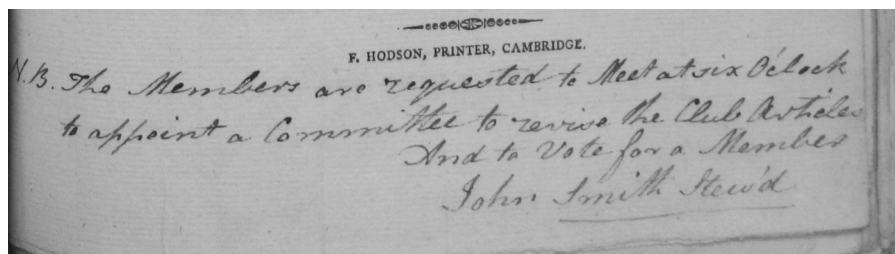 F. HODSON, PRINTER, CAMBRIDGE.
N.B. The Members are requested to Meet at six O'Clock
to appoint a Committee to revise the Club Articles
And to Vote for a Member
John Smith Stew'd